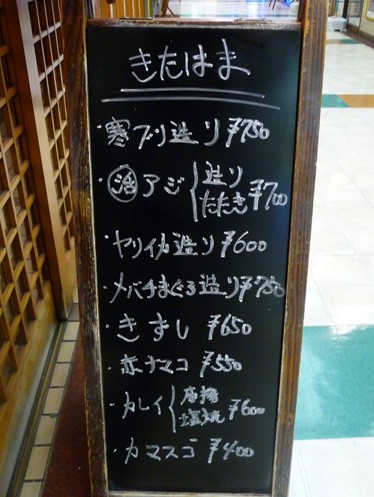 きたはま
・寒ブリ造り ¥750
・活アジ 造り たたき ¥700
・ヤリイカ造り ¥600
・メバチまぐろ造り ¥750
・きずし ¥650
・赤ナマコ ¥550
・カレイ 唐揚 塩焼 ¥600
・カマスゴ ¥400